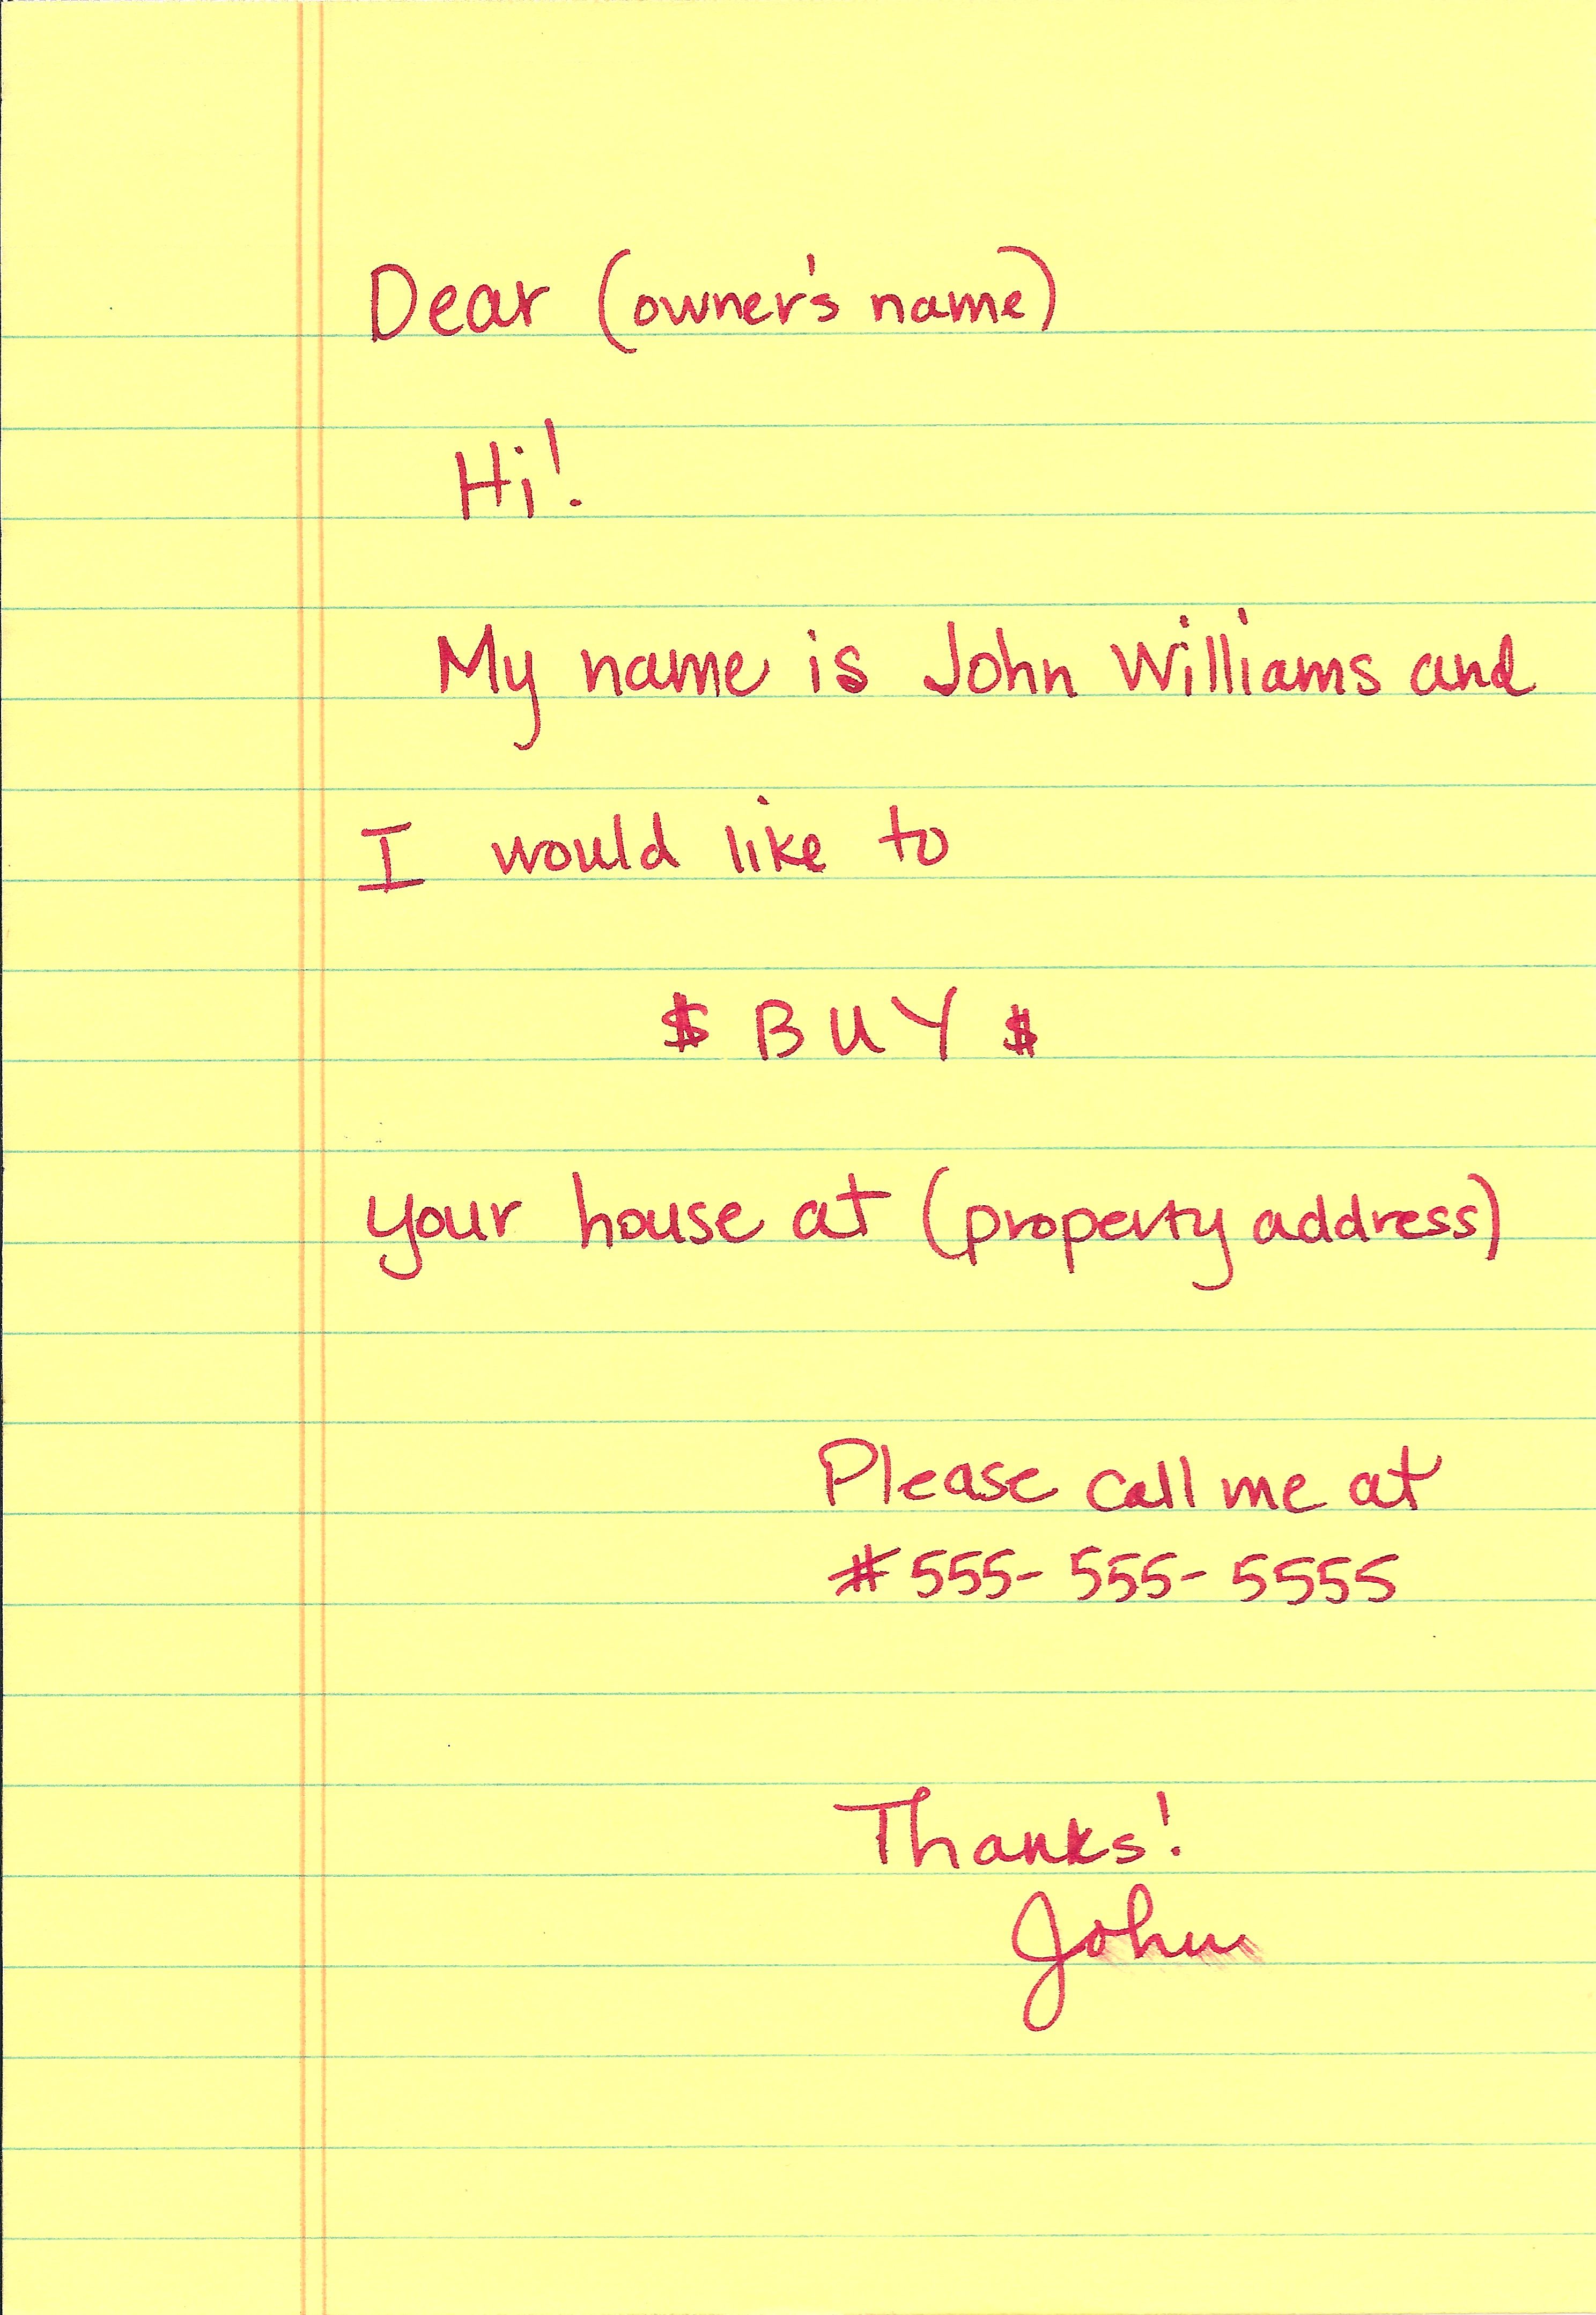 Dear (owner's name)
Hi!
My name is John Williams and
I would like to
$ BUY $
your house at (property address)
Please call me at
#555-555-5555
Thanks!
John